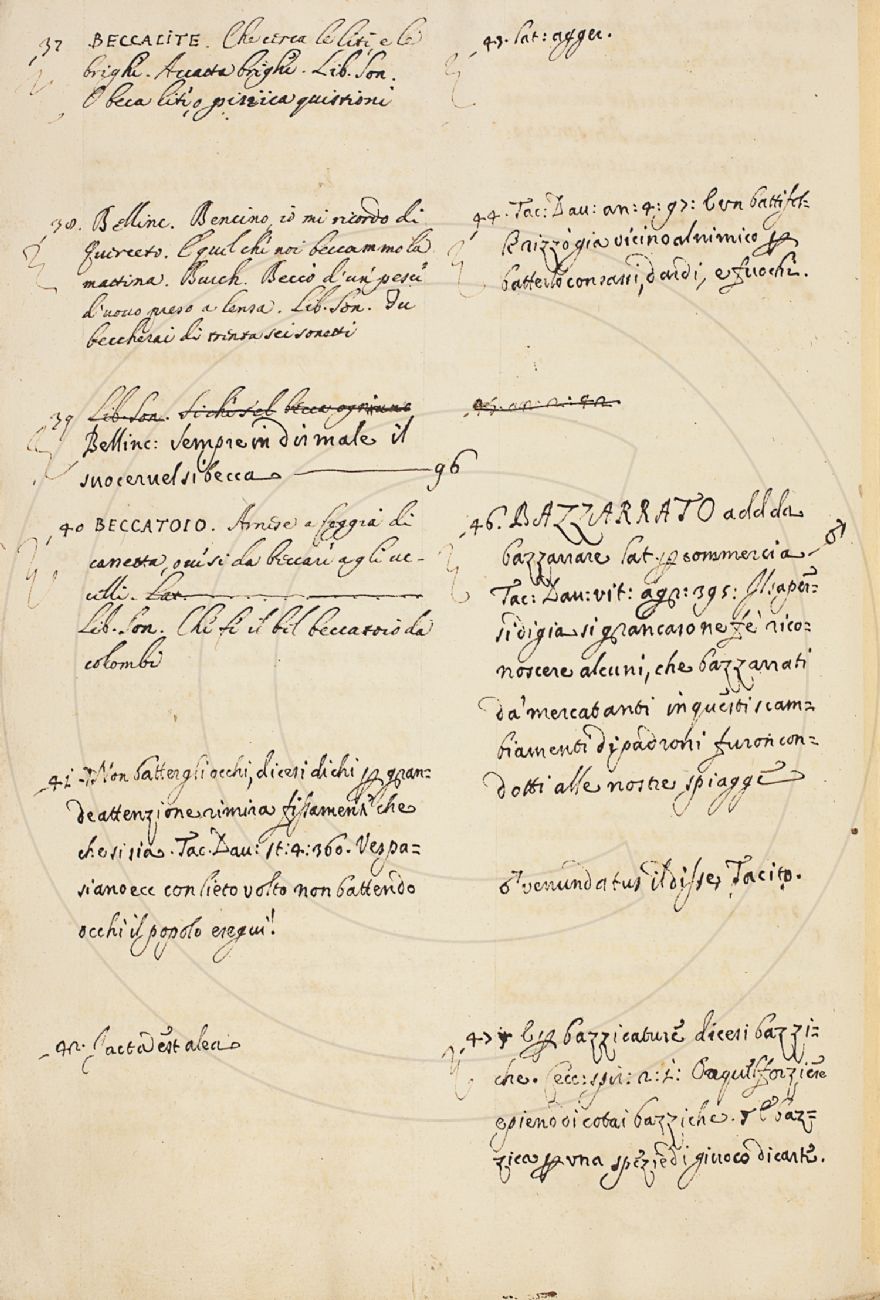 37 BECCALITE. Che cerca le liti, e le
brighe. Accatta brighe. Lib. Son.
O becca liti, o pizzica quistioni
38. Bellinc. Bencino, io mi ricordo di
Querceto. E quel che noi beccammo la
mattina. Burch. Beccò d'un pesce
d'uovo preso a lenza. Lib. Son. Tu
beccherai di trenta sei sonetti
39 Lib. Son. Si che sel becca ogniuno
Bellinc: sempre in dir male il
suo cervel si becca 96
40 BECCATOIO. Arnese a foggia di
cassetta, ove si da beccare agli uc-
celli. Lat.
Lib. Son. Chi fe il bel beccatoio da
colombi
41 Non batter gli occhi, dicesi di chi p gran=
de attenzione rimira fissament. che
che si sia. Tac. Dav: st: 4: 360. Vespa=
siano ecc con lieto volto non battendo
occhi il popolo eseguì!
42. Jacta est alea
43. Lat: agger.
44. Tac: Dav: an: 4: 97: E un battifol=
le rizzò gia vicino al nimico p
batterlo con sassi, dardi, e fuochi.
45. an: 2: 42
46. BAZZARRATO add da
bazzarrare Lat. p commercia
Tac: Dav: vit: agr: 395:
si di gia si grancarone fè rico=
noscere alcuni, che bazzarrati
da' mercatanti in questi scam=
biamenti di padroni furon con=
dotti alle nostre spiagge
venundatus il disse, Tacito.
47 E p bazzicature dicesi bazzi=
che. Cecc: spir: 2: 1: Ha quel forziere
e pieno di cotai bazziche. E baz=
zica p una spezie di giuoco di carte.